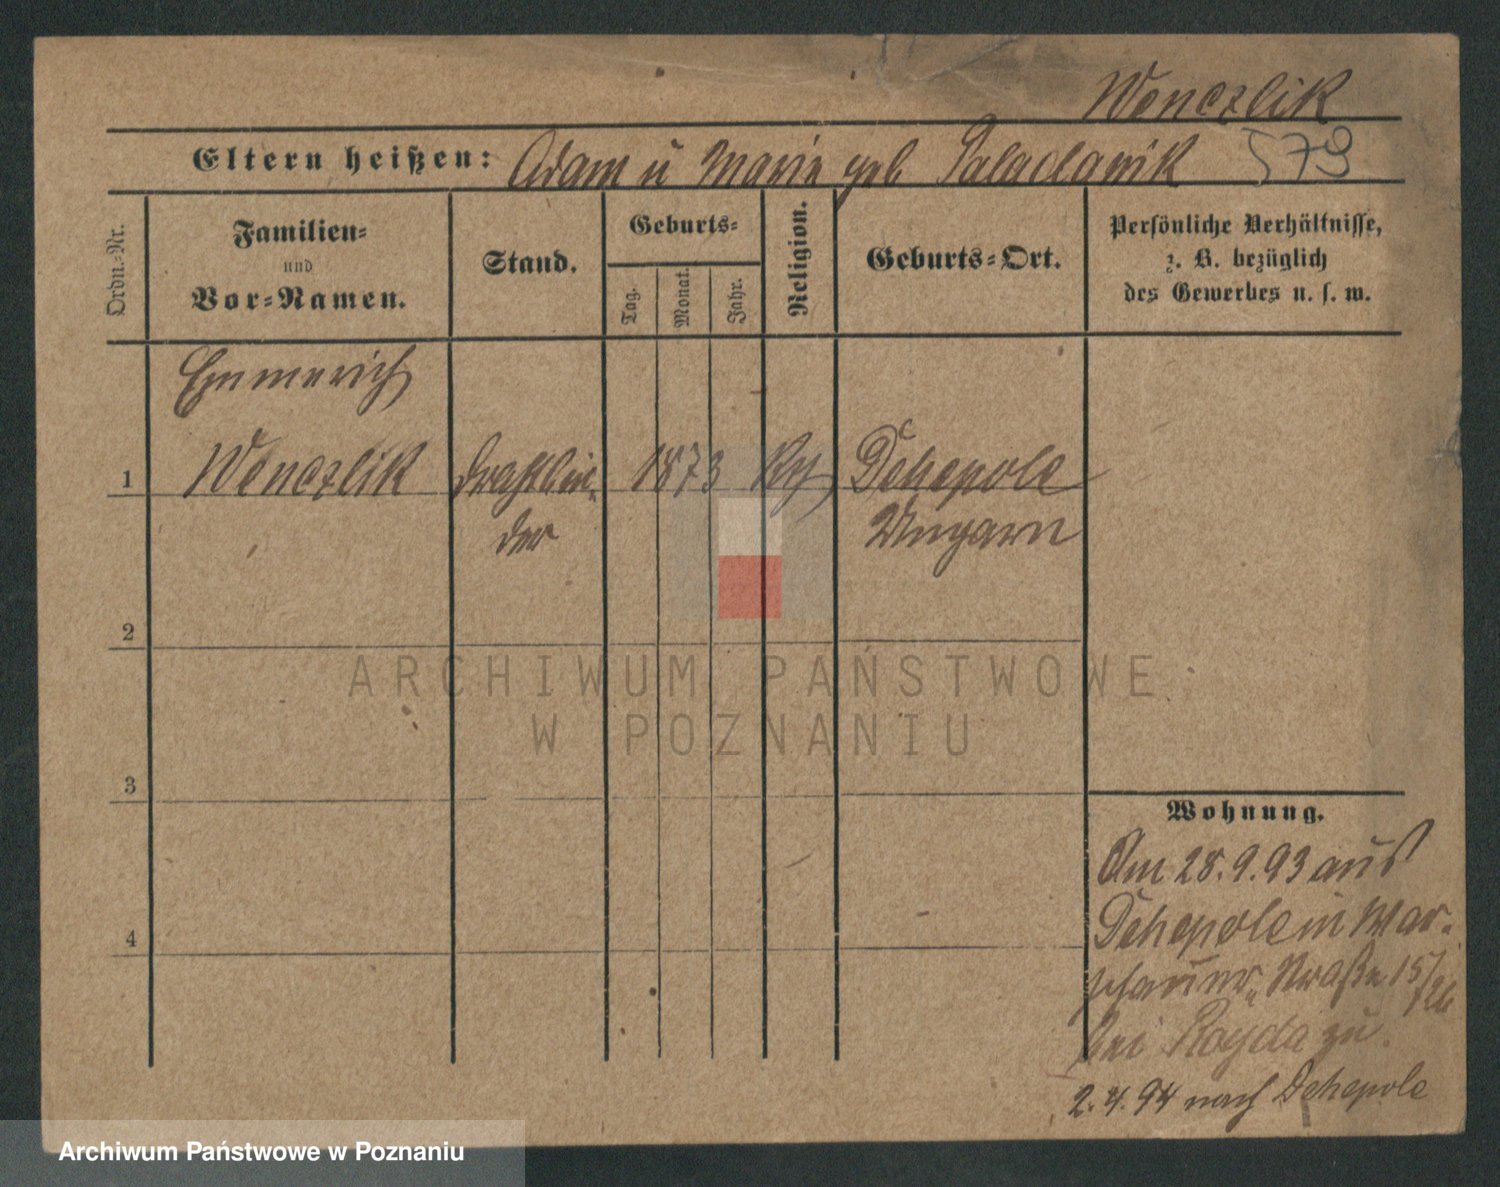 Wenczlik
Eltern heißen: Adam u Marie geb 579
Ordn.-Nr.
Familien-
und
Vor-Namen.
Stand.
Geburts-
Tag.
Monat.
Jahr.
Religion.
Geburts-Ort.
Persönliche Verhältnisse,
z. B. bezüglich
des Gewerbes u. s. w.
Emmerich
1 Wenczlik Drahtbin- 1873 Dehepole
der Ungarn
2
3
4
Wohnung.
Am 28.9.93 aus
Dehepole in War-
schauer-Straße 15/
bei Royda zu.
2.4.94 nach Dehepole
ARCHIWUM PAŃSTWOWE
W POZNANIU
Archiwum Państwowe w Poznaniu